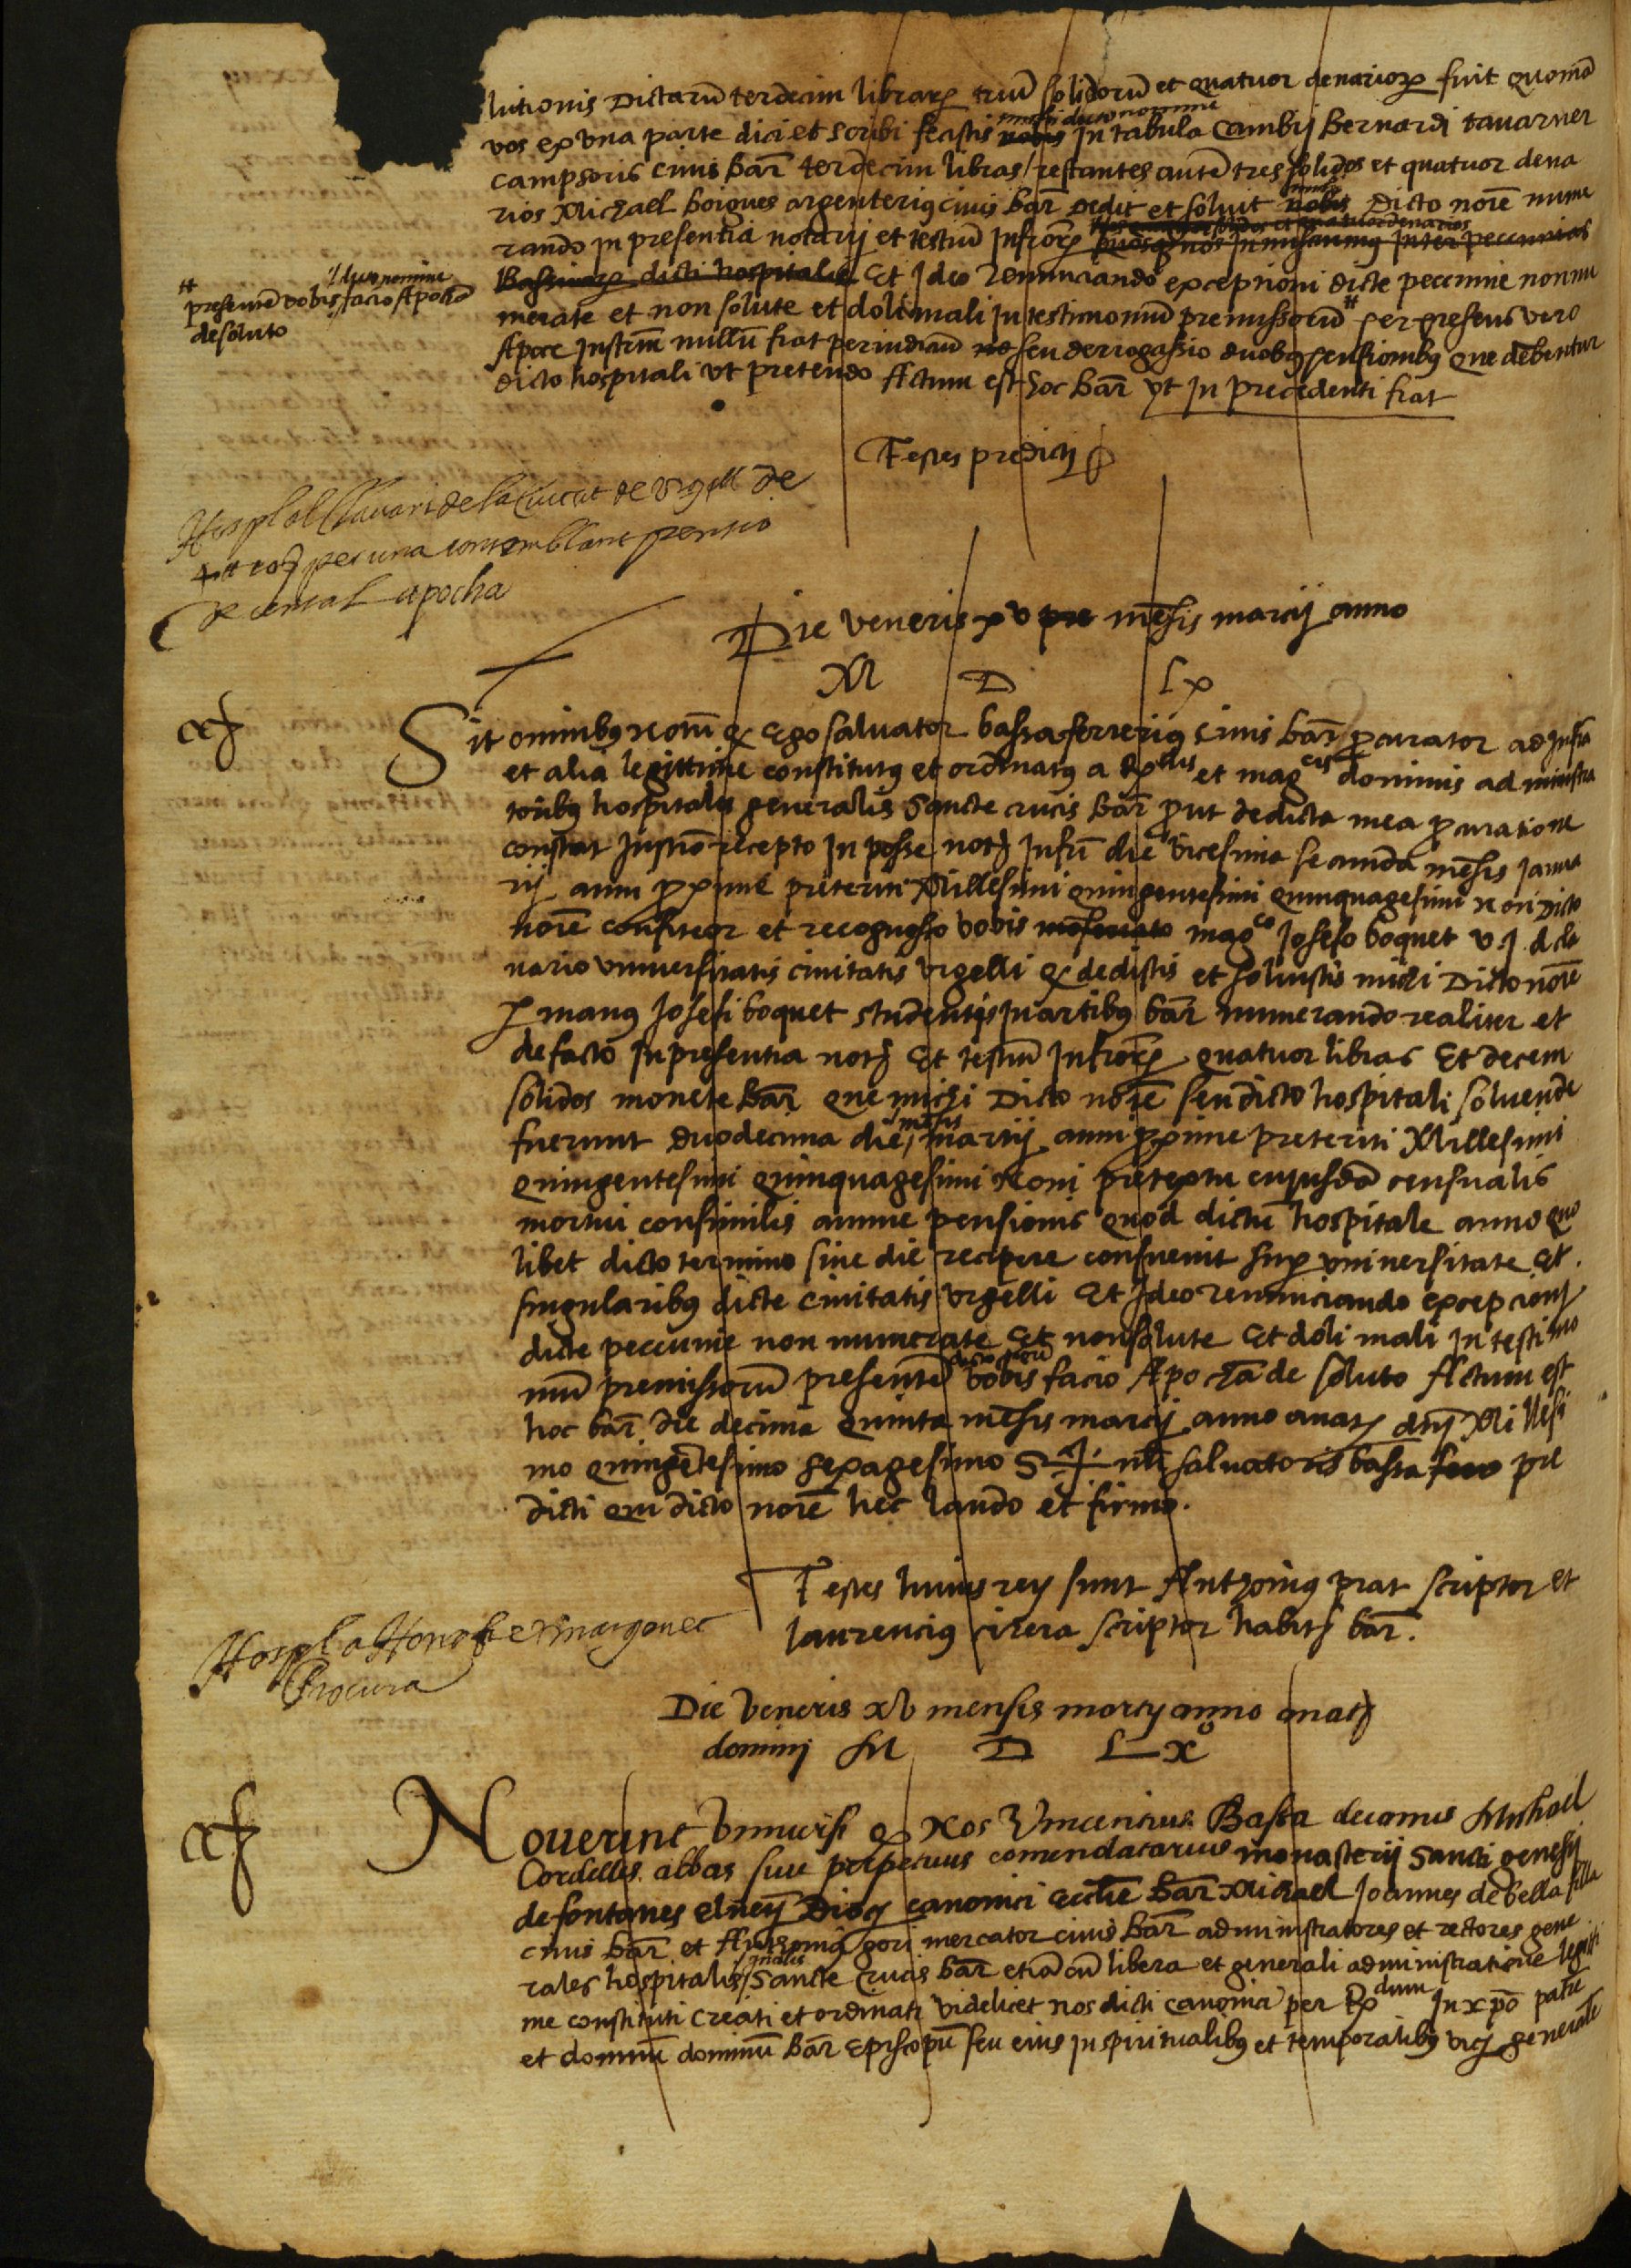 lutionis Dictarũ terdecim librarꝝ triũ solidorũ et quatuor denariorꝝ fuit quomõ
michi dicto nomine
vos ex vna parte dici et scribi fecistis nobis In tabula cambij Bernardi tauarner
campsoris ciuis bar̃ terdecim libras / restantes autẽ tres solidos et quatuor dena
michi
rios Michael boigues argenteriꝰ ciuis bar̃ dedit et soluit nobis Dicto nor̃e nume
tres solidos et quatuor denarios
rando in presentia notarij et testiũ Infrõꝝ quos nos Inter peccunias
Bassinorꝝ dicti hospitalis Et Ideo renunciando exceptioni dicte peccunie non nu
merate et non solute et doli mali In testimoniũ premissorũ # per presens vero
Apoce Instrm̃ nullũ fiat periudiciũ seu derrogassio duobꝰ pensionibꝰ que debentur
dicto hospitali vt pretendo Actum est hoc bar̃ vt In precedenti fiat
#
dicto nomine
presentẽ vobis facio Apochã
de soluto
Testes predicti
Hospl al Clauari de la Ciutat de Vrgell de
per una consemblant pensio
de censal apocha
Die veneris xv pre mẽsis marcij anno
M D Lx
Sit omnibꝰ notũ ꝙ Ego saluator bassa ferreriꝰ ciuis bar̃ ꝓcurator ad Infra
et alia legittime constitutꝰ et ordinatꝰ a Rx dis et mag cis dominis administra
toribꝰ hospitalis generalis Sancte crucis bar̃ ꝓut de dicta mea ꝓcuratione
constat Instrõ recepto In posse notj Infri die vicesima secunda mẽsis Janua
rij anni ꝓxime preteriti Millesimi quingentesimi quinquagesimi noni Dicto
nor̃e confiteor et recognosco vobis mag co Josefo boquet v. J. d. cla
uario vniuersitatis ciuitatis vrgelli ꝙ dedistis et soluistis michi Dicto nor̃e
ꝑ manꝰ Josefi boquet studentis In artibꝰ bar̃ numerando realiter et
de facto In presentia notj Et testiũ Infrõꝝ quatuor libras Et decem
solidos monete bar̃ que michi Dicto nor̃e seu dicto hospitali soluende
mẽsis
fuerunt duodecima die martij anni ꝓxime preteriti Millesimi
quingentesimi quinquagesimi Noni pretextu cujusdã censualis
mortui consimilis annue pensionis quod dictũ hospitale anno quo
libet dicto termino siue die recipere consueuit suꝑ vniuersitate Et
singularibꝰ dicte ciuitatis vrgelli Et Ideo renunciando excepcionj
dicte peccunie non numerate Et non solute Et doli mali In testimo
dicto nor̃e
niũ premissorũ presentẽ vobis facio Apochã de soluto Actum est
hoc bar̃ die decima quinta mẽsis marcij anno a natj dnj Millesi
mo quingẽtesimo sexagesimo S+num saluatoris bassa pre
dicti qui dicto nor̃e hec laudo et firmo.
Testes huius rey sunt Anthoniꝰ prat scriptor et
laurenciꝰ cirera scriptor habitj bar̃.
Hospl
Procura
Die Veneris xv mensis marcij anno a natj
dominj M D Lx o
Nouerint Vniuersi ꝙ Nos Vincentius Bassa decanus Michael
Cordelles abbas siue perpetuus comendatarius monasterij Sancti genesij
de fontanes elneñ Dioc canonici ecclie bar̃ Michael Joannes de bella filla
ciuis bar̃ et Anthoniꝰ gori mercator ciuis bar̃ administratores et rectores gene
gñalis
rales hospitalis Sancte Crucis bar̃ etiã cũ libera et generali administratione legitti
me constituti creati et ordinati videlicet nos dicti canonici per Rx dum In xp̃o patrẽ
et domnũ dominũ bar̃ Episcopũ seu eius In spiritualibꝰ et temporalibꝰ vicj generalẽ